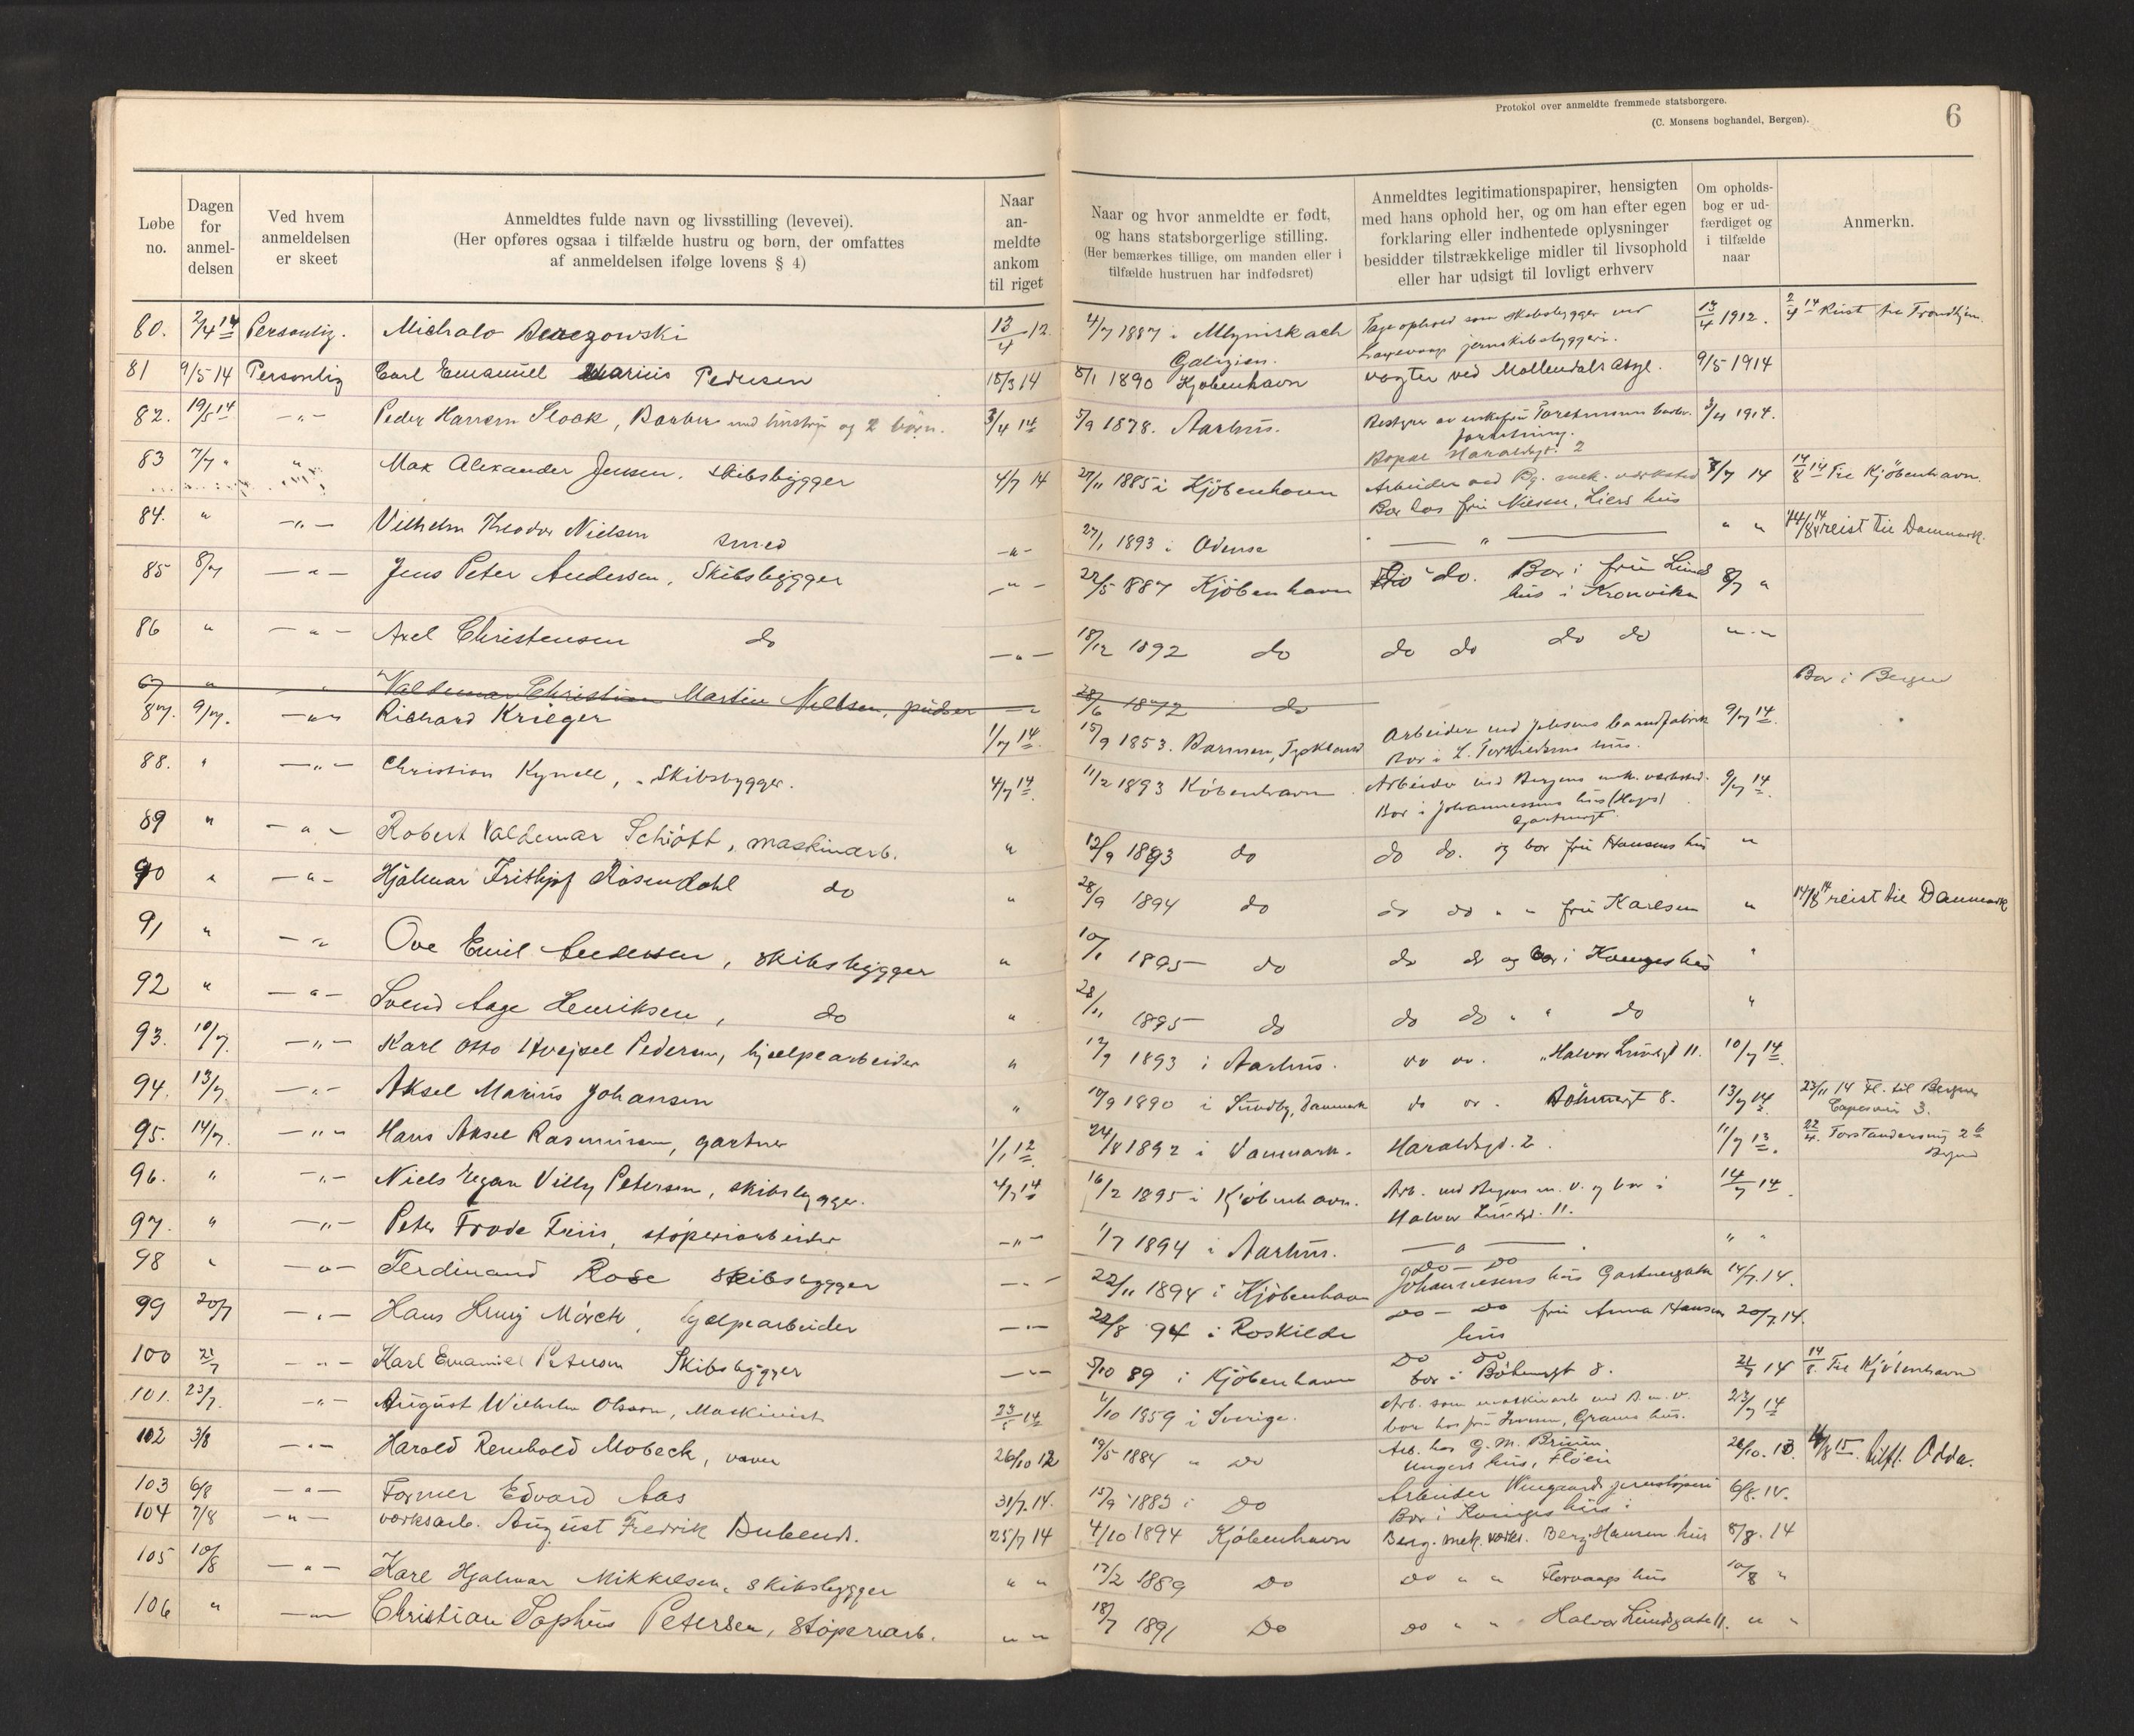 Protokol over anmeldte fremmede statsborgere.
(C. Monsens boghandel, Bergen).
6
Løbe no.
Dagen for anmel-delsen
Ved hvem anmeldelsen er skeet
Anmeldtes fulde navn og livsstilling (levevei).
(Her opføres ogsaa i tilfælde hustru og børn, der omfattes
af anmeldelsen ifølge lovens § 4)
Naar an-meldte ankom til riget
Naar og hvor anmeldte er født,
og hans statsborgerlige stilling.
(Her bemærkes tillige, om manden eller i
tilfælde hustruen har indfødsret)
Anmeldtes legitimationspapirer, hensigten
med hans ophold her, og om han efter egen
forklaring eller indhentede oplysninger
besidder tilstrækkelige midler til livsophold
eller har udsigt til lovligt erhverv
Om opholds-bog er ud-færdiget og i tilfælde naar
Anmerkn.
80. 2/4 14 Personlig. Michalo 13/4 12. 4/7 1887 i Galizien. 13/4 1912. 2/4 14
81 9/5 14 Personlig Carl Emanuel Marius Pedersen 15/3 14 8/1 1890 Kjøbenhavn vogter ved Møllendals Asyl. 9/5 1914
82. 19/5 14 — " — Peder Hansen Slook, Barber med hustru og 2 børn. 3/4 14 5/9 1878. Aarhus. forretning. Bopæl Haraldsgt. 2 3/4 1914.
83 7/7 " " Max Alexander Jensen. Skibsbygger 4/7 14 27/11 1885 i Kjöbenhavn Arbeider ved Bg. mek. værksted Bor hos fru Nielsen, Liers hus 8/7 14 14/8 14 Til Kjöbenhavn.
84. " — " — Vilhelm Theodor Nielsen Smed — " — 27/1 1893 i Odense — " — " " 14/8 14 reist til Danmark.
85 8/7 — " — Jens Peter Andersen, Skibsbygger — " — 22/5 1887 Kjöbenhavn do. Bor i fru Lunds hus i Kronviken 8/7 "
86 " — " — Axel Christensen do — " — 18/12 1892 do do do do do " — "
87 " " Valdemar Christian Martin Nielsen, 28/6 1872 do Bor i Bergen
87. 9/7. — " — Richard Krieger 1/7 14. 15/9 1853. Barmen, Tyskland Arbeider ved Jebsens baandfabrik Bor i L. Torkildsens hus. 9/7 14.
88. " — " — Christian Kynell, Skibsbygger. 4/7 14. 11/2 1893 Köbenhavn Arbeider ved Bergens mek. værksted. Bor i Johannessens hus 9/7 14.
89 " — " — Robert Valdemar Schiött, maskinarb. " 12/9 1893 do do do. og bor fru Hansens hus "
90 " — " — Hjalmar Frithjof Rosendahl do " 28/9 1894 do do do " " fru Karlsen " 14/8 14 reist til Danmark
91 " — " Ove Emil Andersen, skibsbygger " 10/1 1895 do do do og bor i Konges hus "
92 " — " — Svend Aage Henriksen, do " 28/11 1895 do do do " " do "
93. 10/7. — " — Karl Otto Pedersen, hjælpearbeider " 1893 i Aarhus. do do. " Halvor Lundsgt 11. 10/7 14.
94. 13/7 — " — Aksel Marius Johansen " 10/9 1890 i Sundby, Danmark do do. Böhmergt 8. 13/7 14. 23/11 14 Fl. til Bergen 3.
95. 14/7. — " — Hans Aksel Rasmussen, gartner 1/1 12. 24/8 1892 i Danmark. Haraldsgt. 2. 11/7 13. 22/4. Forstandersmug 2 b
96. " — " — Niels Egon Villy Petersen, skibsbygger. 4/7 14 16/2 1895 i Kjöbenhavn. Arb. ved Bergens m. V. og bor i Halvor Lundsgt. 11. 14/7 14.
97. " — " — Peter Frode Friis, støperiarbeider — " — 1/7 1894 i Aarhus. — " — " "
98 " — " — Ferdinand Rose Skibsbygger — " — 22/11 1894 i Kjöbenhavn do — do Johannesens hus Gartnergaten 14/7. 14.
99 20/7 — " — Hans Henry Mörch, hjelpearbeider — " — 22/8 94 i Roskilde do — do fru Anna Hansens hus 20/7. 14.
100 21/7 — " — Karl Emanuel Petersen Skibsbygger — " — 5/10 89 i Kjöbenhavn do do bor i Böhmergt 8. 21/7 14 14/8. Til Kjöbenhavn
101. 23/7. — " — August Wilhelm Olsson, Maskinist 1/10 1859 i Sverige. Arb. som maskinarb. ved B. m. V. 23/7 14
102 3/8 — " — Harald Reinhold Mobeck, væver 26/10 12 19/5 1884 " do Arb. hos G. M. Bruun. Ungers hus, Fløen 26/10. 13 15. tilfl. Odda.
103 6/8 — " — Former Edvard Aas 31/7. 14. 15/9 1883 i do Arbeider Wingaards jernstøperi Bor i Konges hus 6/8. 14.
104 7/8 — " — værksarb. August Fredrik 25/7 14 4/10 1894 Kjöbenhavn Berg. mek. værks. Berg. Hansens hus 8/8. 14
105 10/8 — " — Karl Hjalmar Mikkelsen, skibsbygger " " 17/2 1889 do do " " Florvaags hus 10/8 "
106 " — " — Christian Sophus Petersen, støperiarb. " " 18/7 1891 do do " " Halvor Lundsgate 11. " "